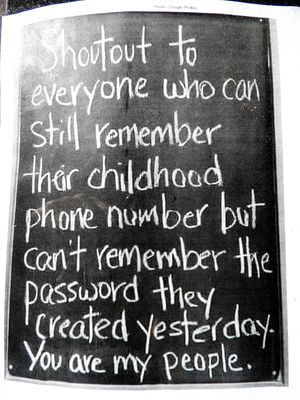 Photo - Google Photos
Shoutout to
everyone who can
still remember
their childhood
phone number but
can't remember the
password they
created yesterday.
You are my people.